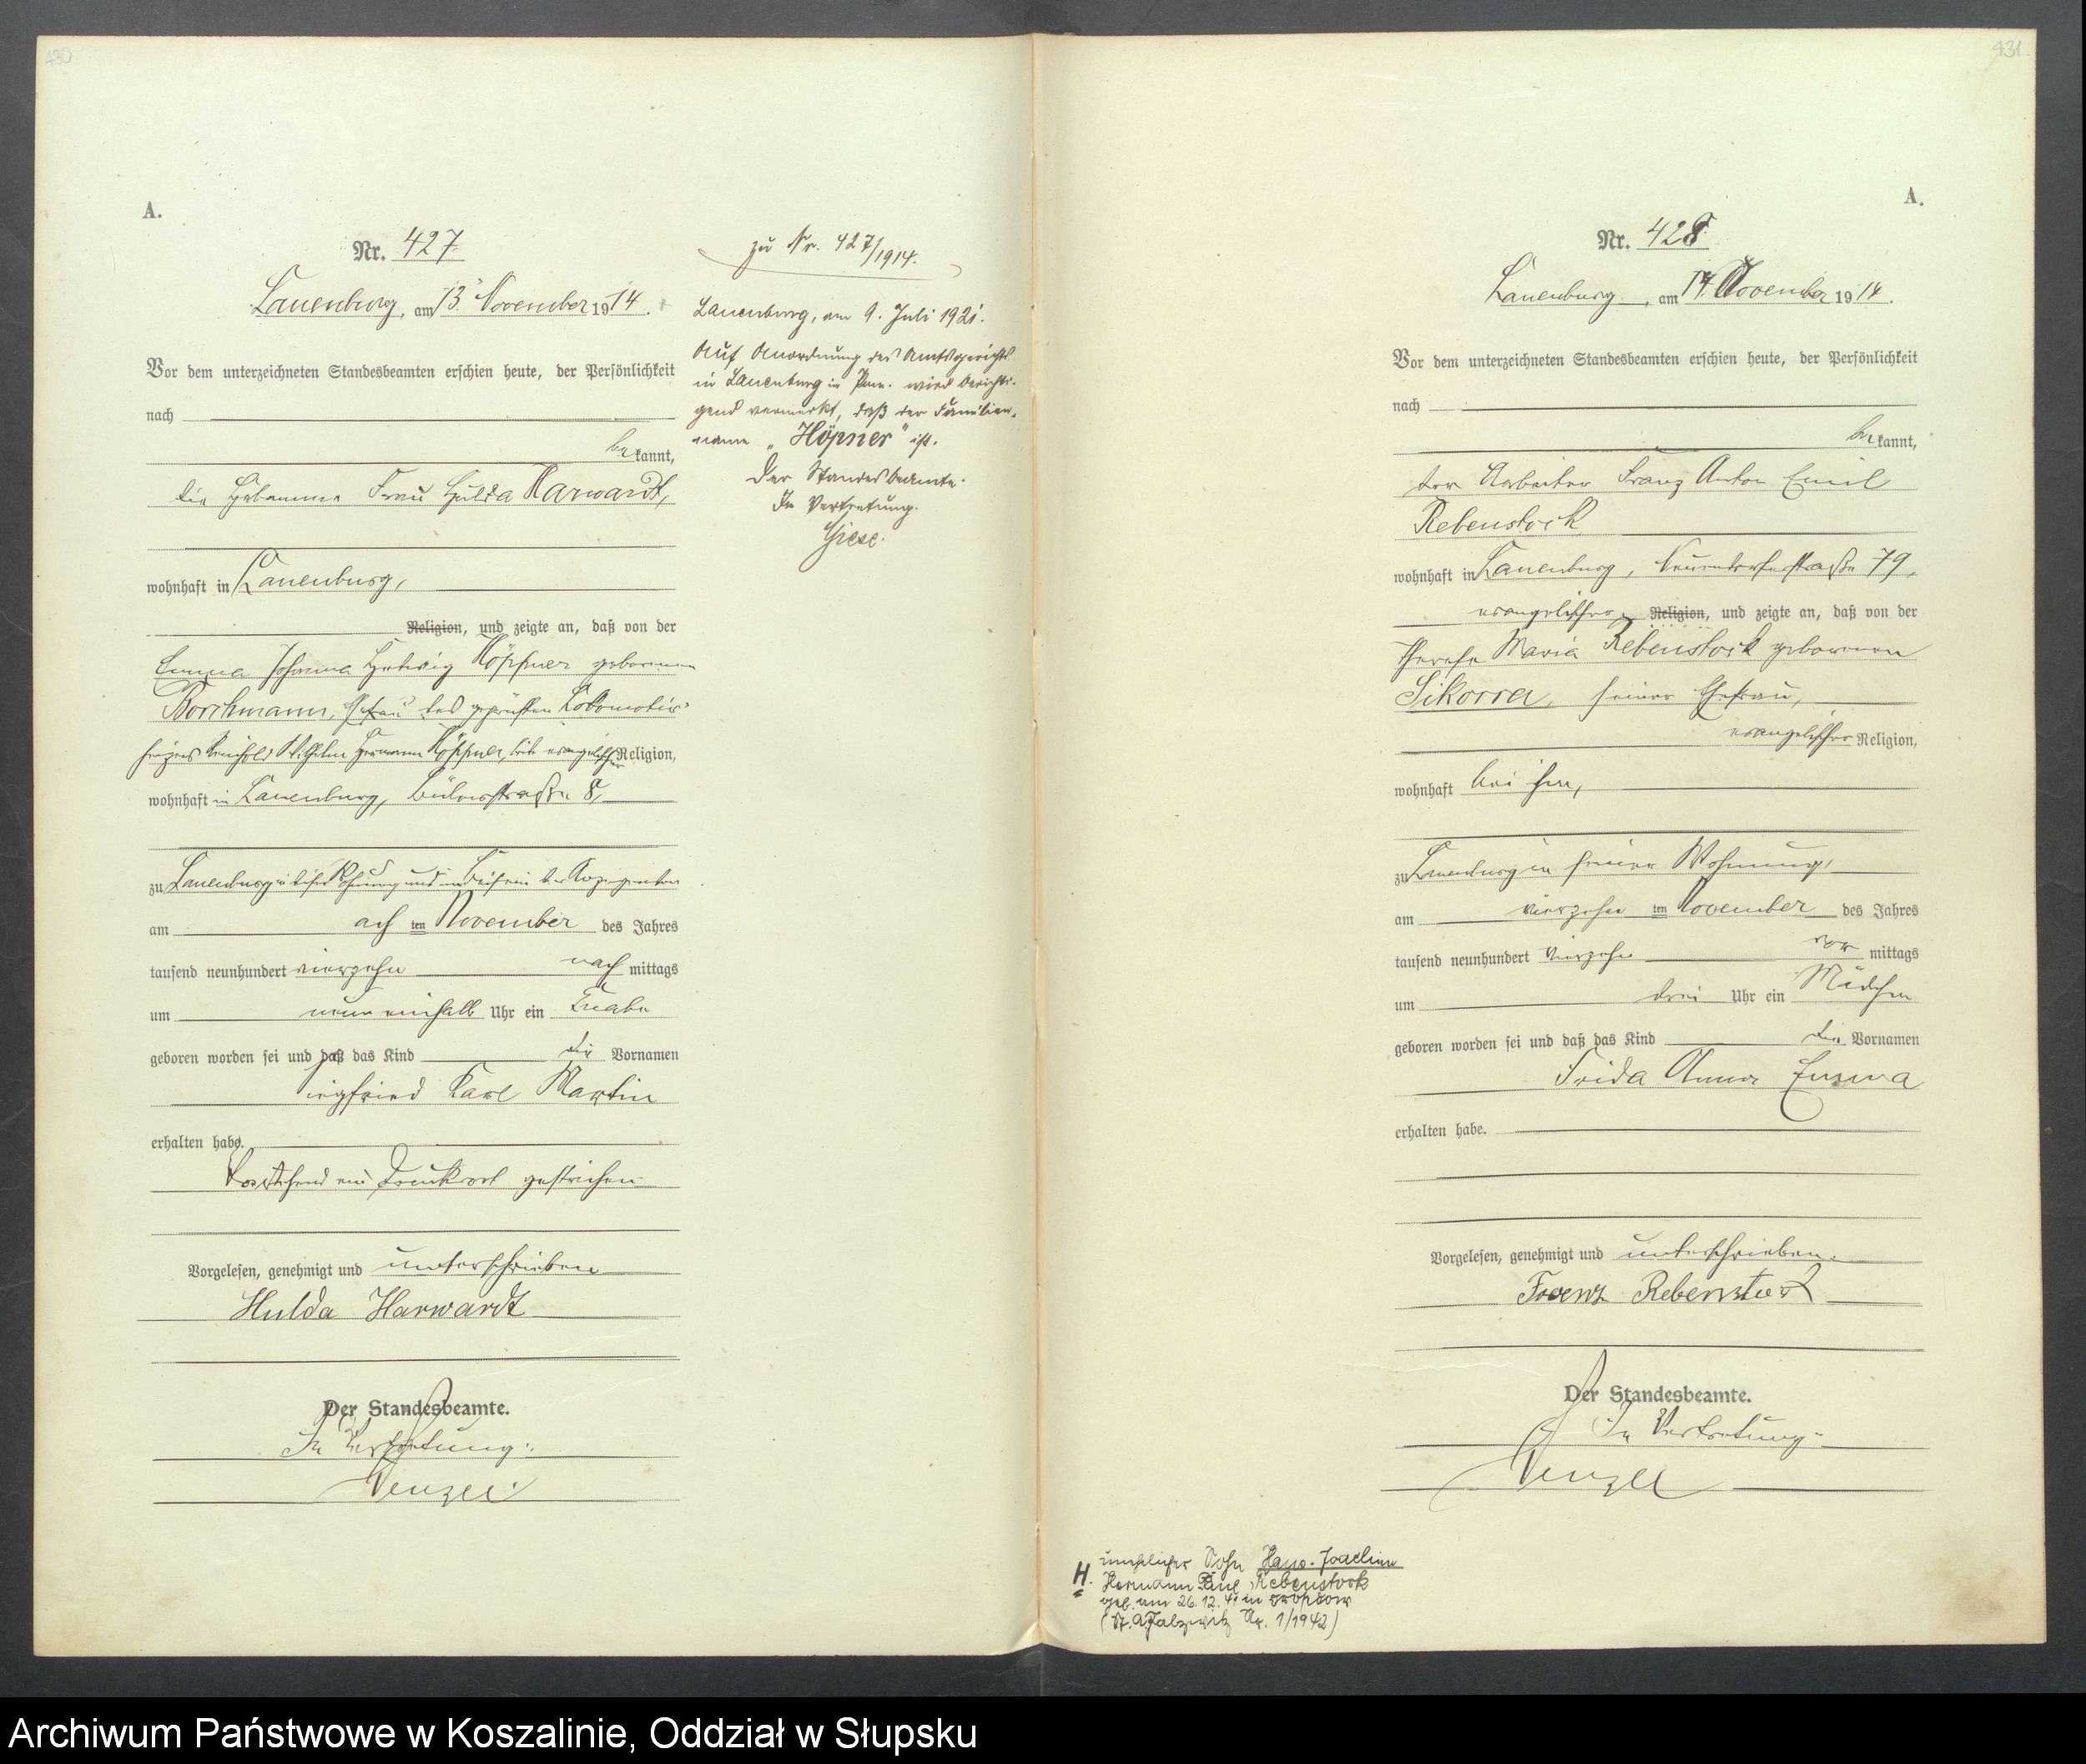 430
A.
Nr. 427
Lauenburg, am 13. November 1914.
Vor dem unterzeichneten Standesbeamten erschien heute, der Persönlichkeit
nach
bekannt,
die Hebamme Frau Hulda Harwardt,
wohnhaft in Lauenburg,
Religion, und zeigte an, daß von der
Emma Johanna Hedwig Höppner geborenen
Borchmann, Ehefrau des geprüften Lokomotiv-
heizers Reinhold Wilhelm Hermann Höppner, beide evangelischer Religion,
wohnhaft in Lauenburg, Bülowstraße 8,
zu Lauenburg in dieser Wohnung und im Beisein der Anzeigenden
am acht ten November des Jahres
tausend neunhundert vierzehn nach mittags
um neun einhalb Uhr ein Knabe
geboren worden sei und daß das Kind die Vornamen
Siegfried Karl Martin
erhalten habe.
Vorstehend ein Druckwort gestrichen
Vorgelesen, genehmigt und unterschrieben
Hulda Harwardt
Der Standesbeamte.
In Vertretung:
Wenzel
zu Nr. 427/1914.
Lauenburg, am 9. Juli 1921.
Auf Anordnung des Amtsgerichts
in Lauenburg in Pom. wird berichti-
gend vermerkt, daß der Familien-
name „Höpner" ist.
Der Standesbeamte.
In Vertretung.
Giese.
431.
A.
Nr. 428
Lauenburg, am 14. November 1914.
Vor dem unterzeichneten Standesbeamten erschien heute, der Persönlichkeit
nach
bekannt,
der Arbeiter Franz Anton Emil
Rebenstock
wohnhaft in Lauenburg, Neuendorferstraße 79,
evangelischer Religion, und zeigte an, daß von der
Therese Maria Rebenstock geborenen
Sikorra, seiner Ehefrau,
evangelischer Religion,
wohnhaft bei ihm,
zu Lauenburg in seiner Wohnung,
am vierzehn ten November des Jahres
tausend neunhundert vierzehn vor mittags
um drei Uhr ein Mädchen
geboren worden sei und daß das Kind die Vornamen
Frida Anna Emma
erhalten habe.
Vorgelesen, genehmigt und unterschrieben.
Franz Rebenstock
Der Standesbeamte.
In Vertretung:
Wenzel
H. unehelicher Sohn Hans-Joachim
Hermann Paul Rebenstock
geb. am 26.12.41 in
(St. A. Nr. 1/1942)
Archiwum Państwowe w Koszalinie, Oddział w Słupsku